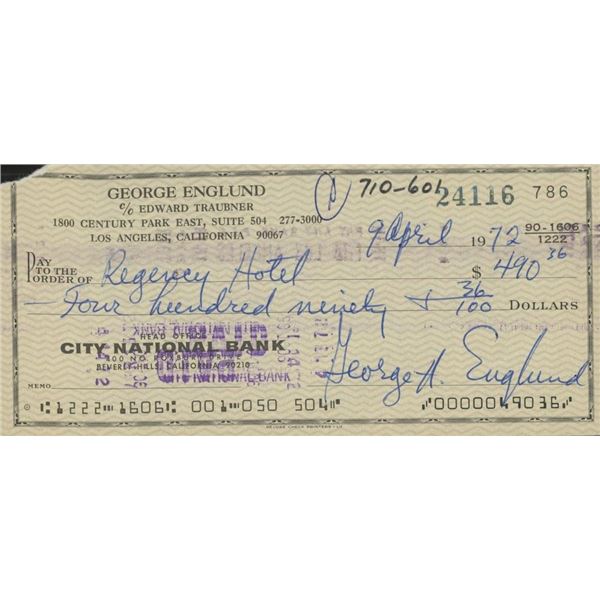 GEORGE ENGLUND
c/o EDWARD TRAUBNER
1800 CENTURY PARK EAST, SUITE 504 277-3000
LOS ANGELES, CALIFORNIA 90067
710-601
24116 786
9 April 1972
90-1606
1222
PAY
TO THE
ORDER OF Regency Hotel $ 490 36
Four hundred ninety + 36/100 DOLLARS
HEAD OFFICE
CITY NATIONAL BANK
400 NO. ROXBURY DRIVE
BEVERLY HILLS, CALIFORNIA 90210
George H. Englund
MEMO
⑆1222⑉1606⑆ 001⑉050 504⑈ ⑈0000049036⑈
DELUXE CHECK PRINTERS